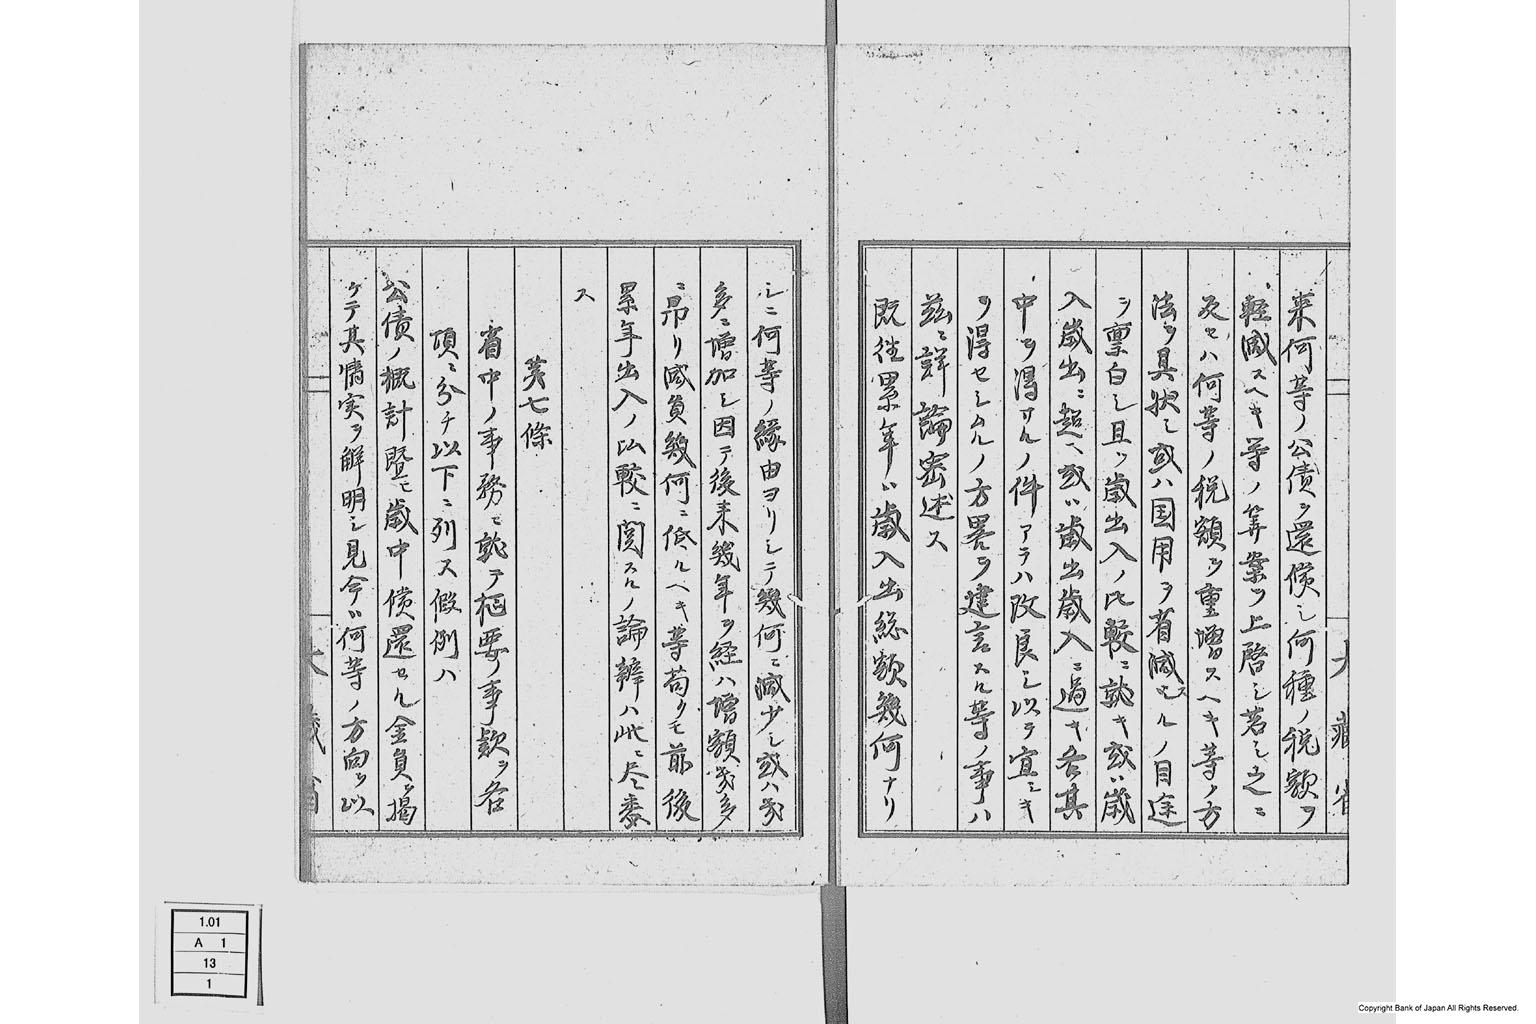 来何等ノ公債ヲ還償シ何種ノ税額ヲ
軽減スヘキ等ノ算案ヲ上啓シ若シ之ニ
及セハ何等ノ税額ヲ重増スヘキ等ノ方
法ヲ具状シ或ハ国用ヲ省減スルノ目途
ヲ稟白シ且ツ歳出入ノ比較ニ就キ或ハ歳
入歳出ニ超ヘ或ハ歳出歳入ニ過キ各其
中ヲ得サルノ件アラハ改良シ以テ宜シキ
ヲ得セシムルノ方畧ヲ建言スル等ノ事ハ
茲ニ詳論密述ス
既往累年ハ歳入出総額幾何ナリ
シニ何等ノ縁由ヨリシテ幾何ニ減少シ或ハ幾
多ニ増加シ因テ後来幾年ヲ経ハ増額幾多
ニ昂リ減負幾何ニ低ルヘキ等苟クモ前後
累年出入ノ比較ニ関スルノ論辨ハ此ニ尽悉
ス
第七條
省中ノ事務ニ就テ枢要ノ事款ヲ各
項ニ分チ以下ニ列ス假例ハ
公債ノ概計暨ヒ歳中償還セル金員ヲ掲
ケテ其情実ヲ解明シ見今ハ何等ノ方向ヲ以
大藏省
大藏省
1.01
A 1
13
1
Copyright Bank of Japan All Rights Reserved.